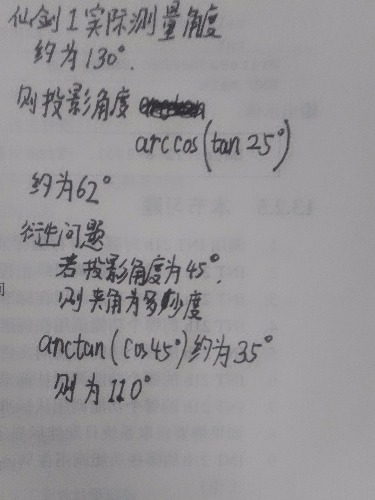 仙剑I实际测量角度
约为130°.
则投影角度
arccos(tan25°)
约为62°
衍生问题
若投影角度为45°.
则夹角为多少度
arctan(cos45°)约为35°
则为110°